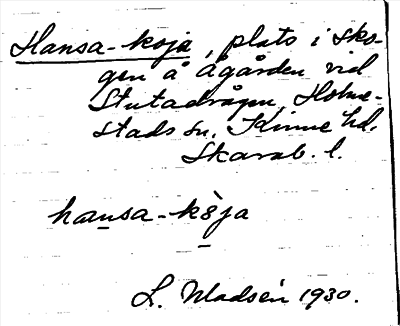 Hansa-koja, plats i sko-
gen å Ågården vid
Stutadrågen, Holme-
stads sn. Kinne hd.
Skarab. l.
hansa-kòja
L. Madsén 1930.